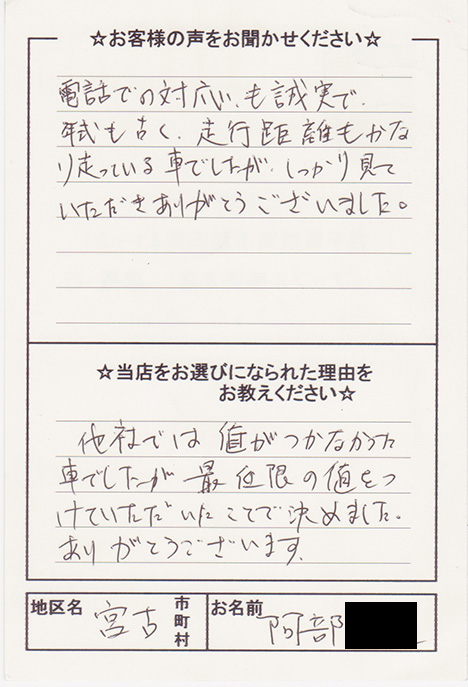 ☆お客様の声をお聞かせください☆
電話での対応い、も誠実で、
年式も古く、走行距離もかな
り走っている車でしたが、しっかり見て
いただきありがとうございました。
☆当店をお選びになられた理由を
お教えください☆
他社では値がつかなかった
車でしたが最低限の値をつ
けていただいたことで決めました。
ありがとうございます。
地区名
宮古
市
町
村
お名前
阿部